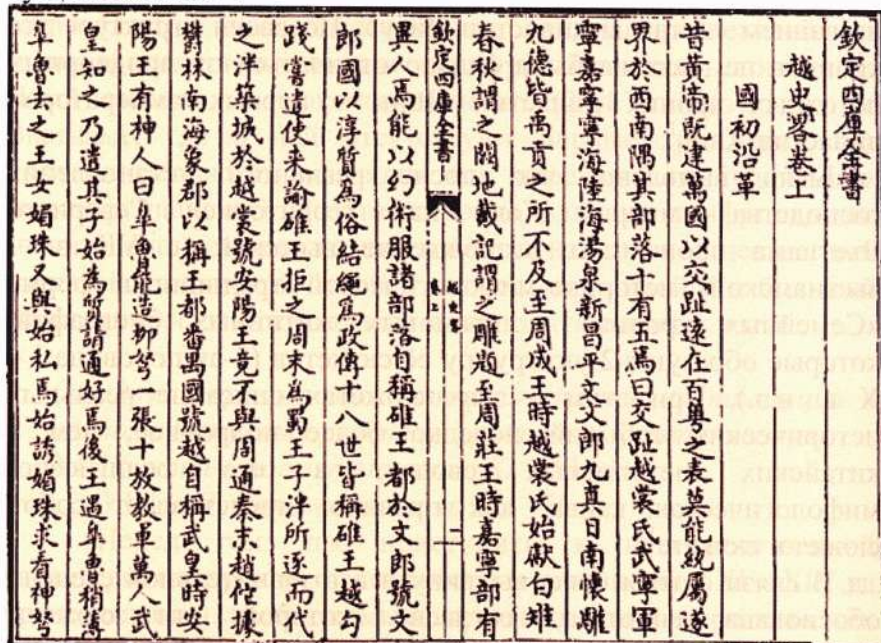 欽定四庫全書
越史略卷上
國初沿革
昔黃帝既建萬國以交趾遠在百粤之表莫能統屬遂
界於西南隅其部落十有五焉曰交趾越裳氏武寧軍
寧嘉寧寧海陸海湯泉新昌平文文郎九真日南懷驩
九德皆禹貢之所不及至周成王時越裳氏始獻白雉
春秋謂之闕地戴記謂之雕題至周莊王時嘉寧部有
欽定四庫全書
越史略
卷上
一
異人焉能以幻術服諸部落自稱碓王都於文郎號文
郎國以淳質爲俗結繩爲政傳十八世皆稱碓王越勾
踐嘗遣使來諭碓王拒之周末爲蜀王子泮所逐而代
之泮築城於越裳號安陽王竟不與周通秦末趙佗據
鬱林南海象郡以稱王都番禺國號越自稱武皇時安
陽王有神人曰臯魯能造柳弩一張十放教軍萬人武
皇知之乃遣其子始爲質請通好焉後王遇臯魯稍薄
臯魯去之王女媚珠又與始私焉始誘媚珠求看神弩